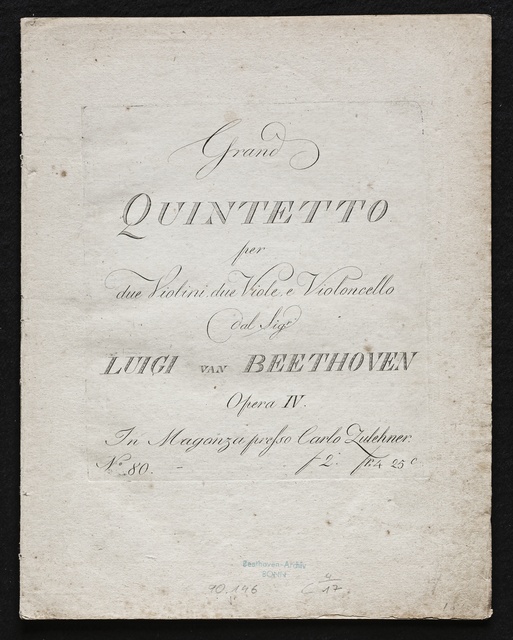 Grand
QUINTETTO
per
due Violini, due Viole, e Violoncello
dal Sigr.
LUIGI VAN BEETHOVEN
Opera IV.
In Maganza presso Carlo Zulehner.
No. 80. f 2. fr. 4 25 c
Beethoven-Archiv
BONN